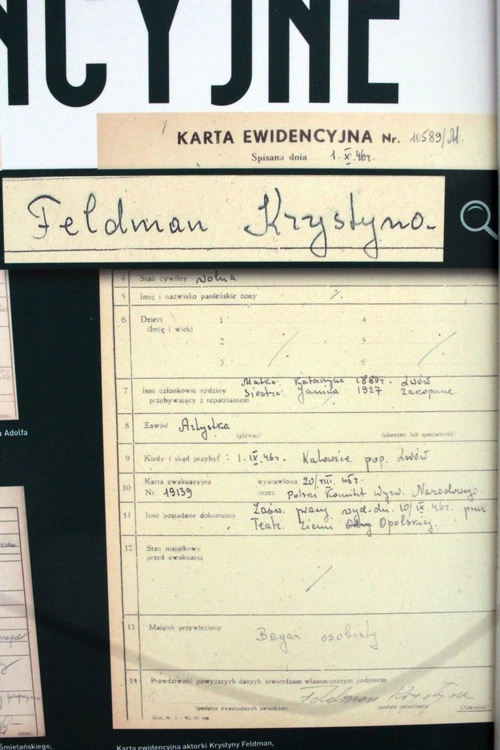 NCYJNE
KARTA EWIDENCYJNA Nr. 10589/M.
Spisana dnia 1.X.46r.
Feldman Krystyna
4 Stan cywilny wolna
5 Imię i nazwisko panieńskie żony ./.
6 Dzieci 1 4
(Imię i wiek) 2 5
3 6
7 Inni członkowie rodziny Matka: Katarzyna 1880r. Lwów
przebywający z repatriantem Siostra: Janina 1927 Zakopane
8 Zawód Artystka
(główny) (uboczny lub specjalność)
9 Kiedy i skąd przybył: 1.IX.46r. Katowice pop. Lwów
10 Karta ewakuacyjna wystawiona 20/VIII.45r.
Nr. 19139 przez Polski Komitet Wyzw. Narodowego.
11 Inne posiadane dokumenty Zaśw. pracy wyd. dn. 10/IX.46r. przez
Teatr. Ziemi Opolskiej.
12 Stan majątkowy
przed ewakuacją
13 Majątek przywieziony Bagaż osobisty
14 Prawdziwość powyższych danych stwierdzam własnoręcznym podpisem
Feldman Krystyna
(podpisy ewentualnych świadków) (podpis repatrianta)
a Adolfa
Śmietańskiego,
Karta ewidencyjna aktorki Krystyny Feldman,